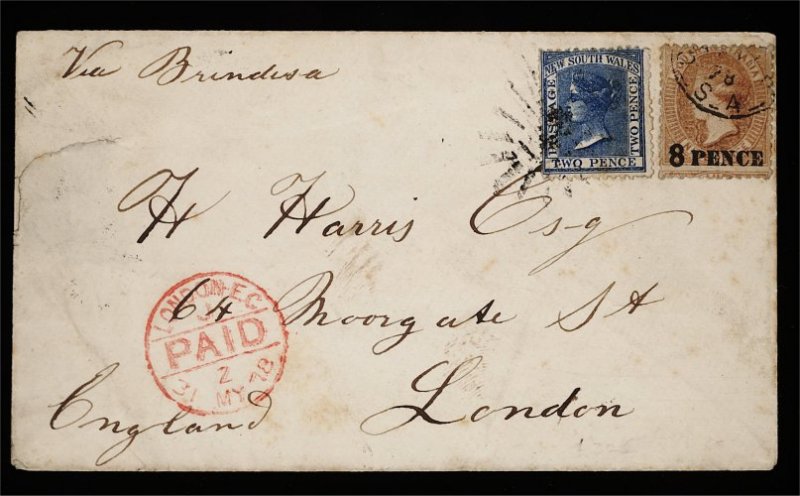 Via Brindisa
NEW SOUTH WALES
POSTAGE
TWO PENCE
TWO PENCE
8 PENCE
18
S-A
H Harris Esq
64 Moorgate St
London
England
LONDON-E.C
PAID
2
31 MY 78